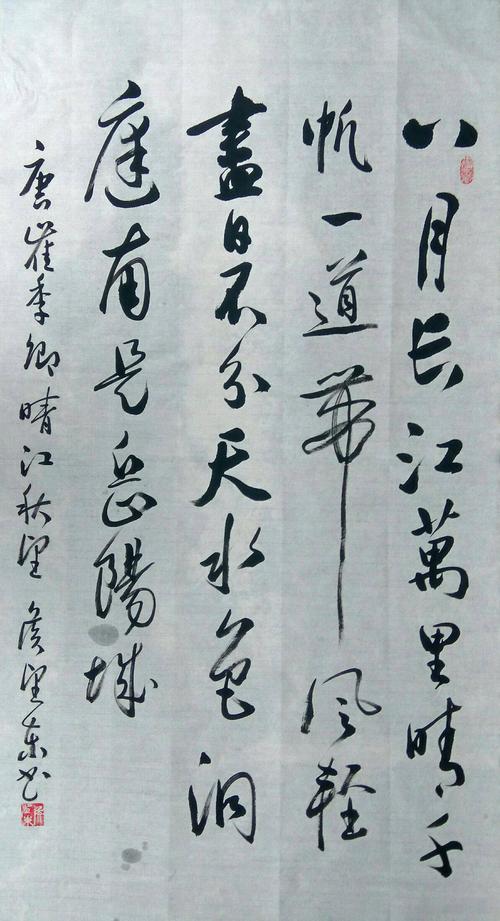 八月长江萬里晴千
帆一道带風輕
盡日不分天水色洞
庭南是岳陽城
唐崔季卿晴江秋望 侯望东书